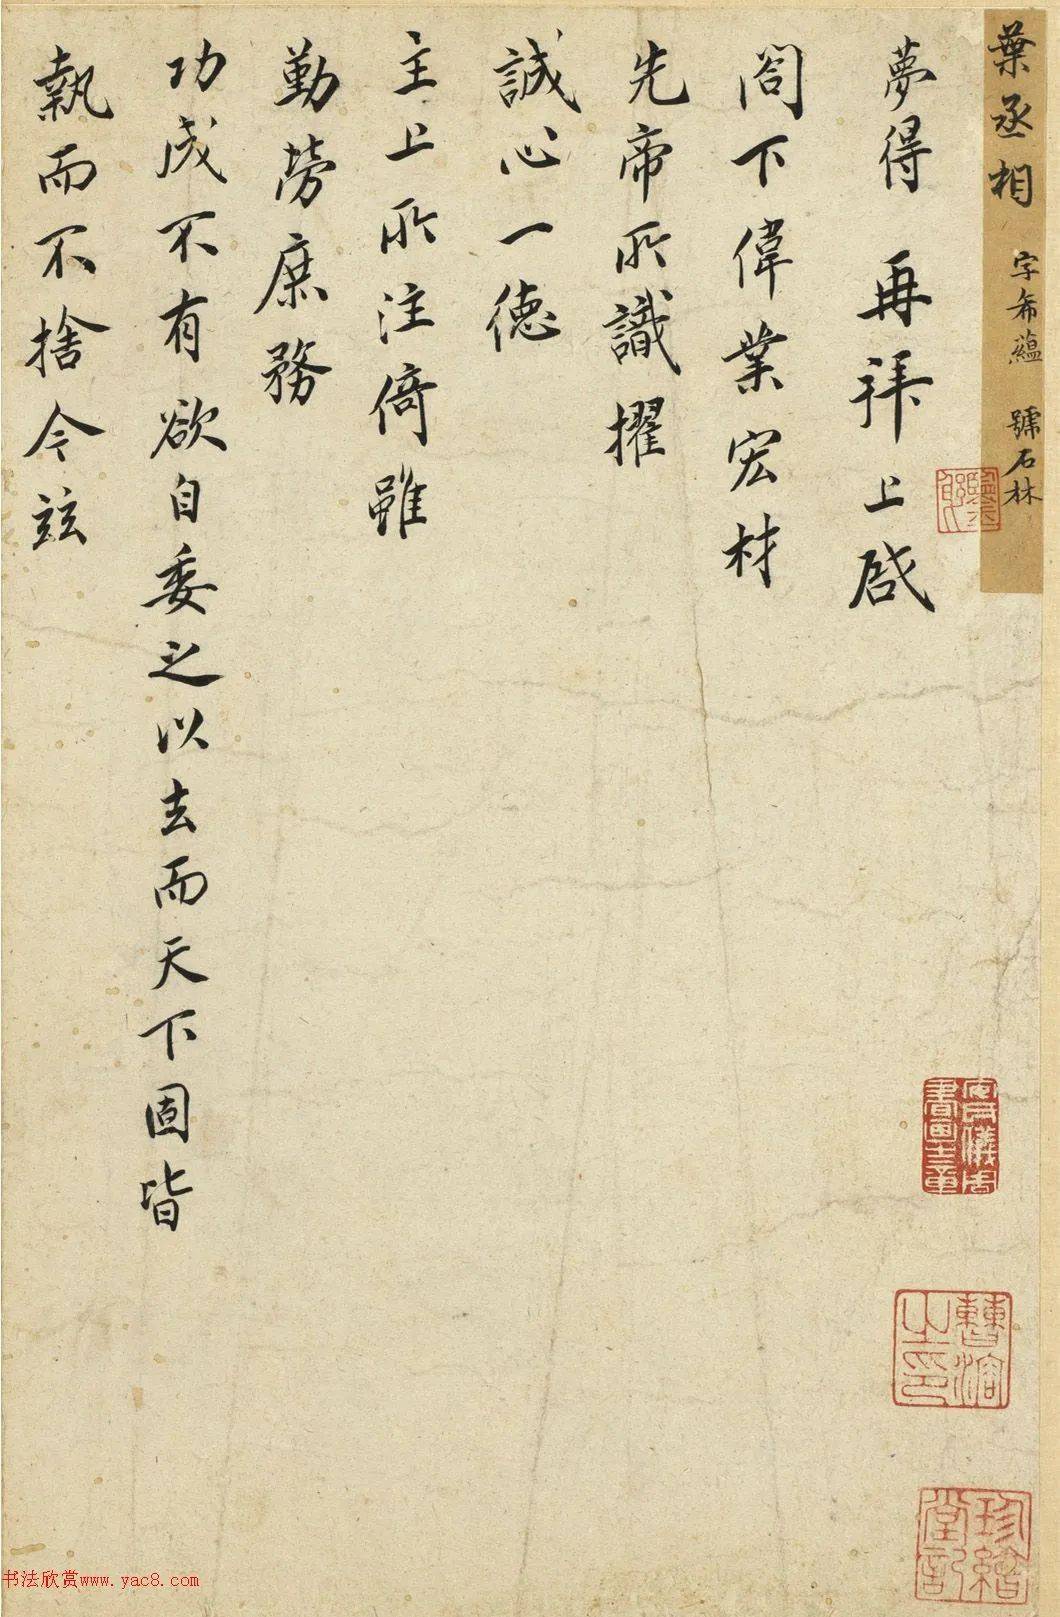 葉丞相 字希蘊 號石林
夢得 再拜上啟
閤下偉業宏材
先帝所識擢
誠心一德
主上所注倚雖
勤勞庶務
功成不有欲自委之以去而天下固皆
執而不捨今茲
安儀周書畫之章
曹溶之印
珍繪堂記
书法欣赏www.yac8.com